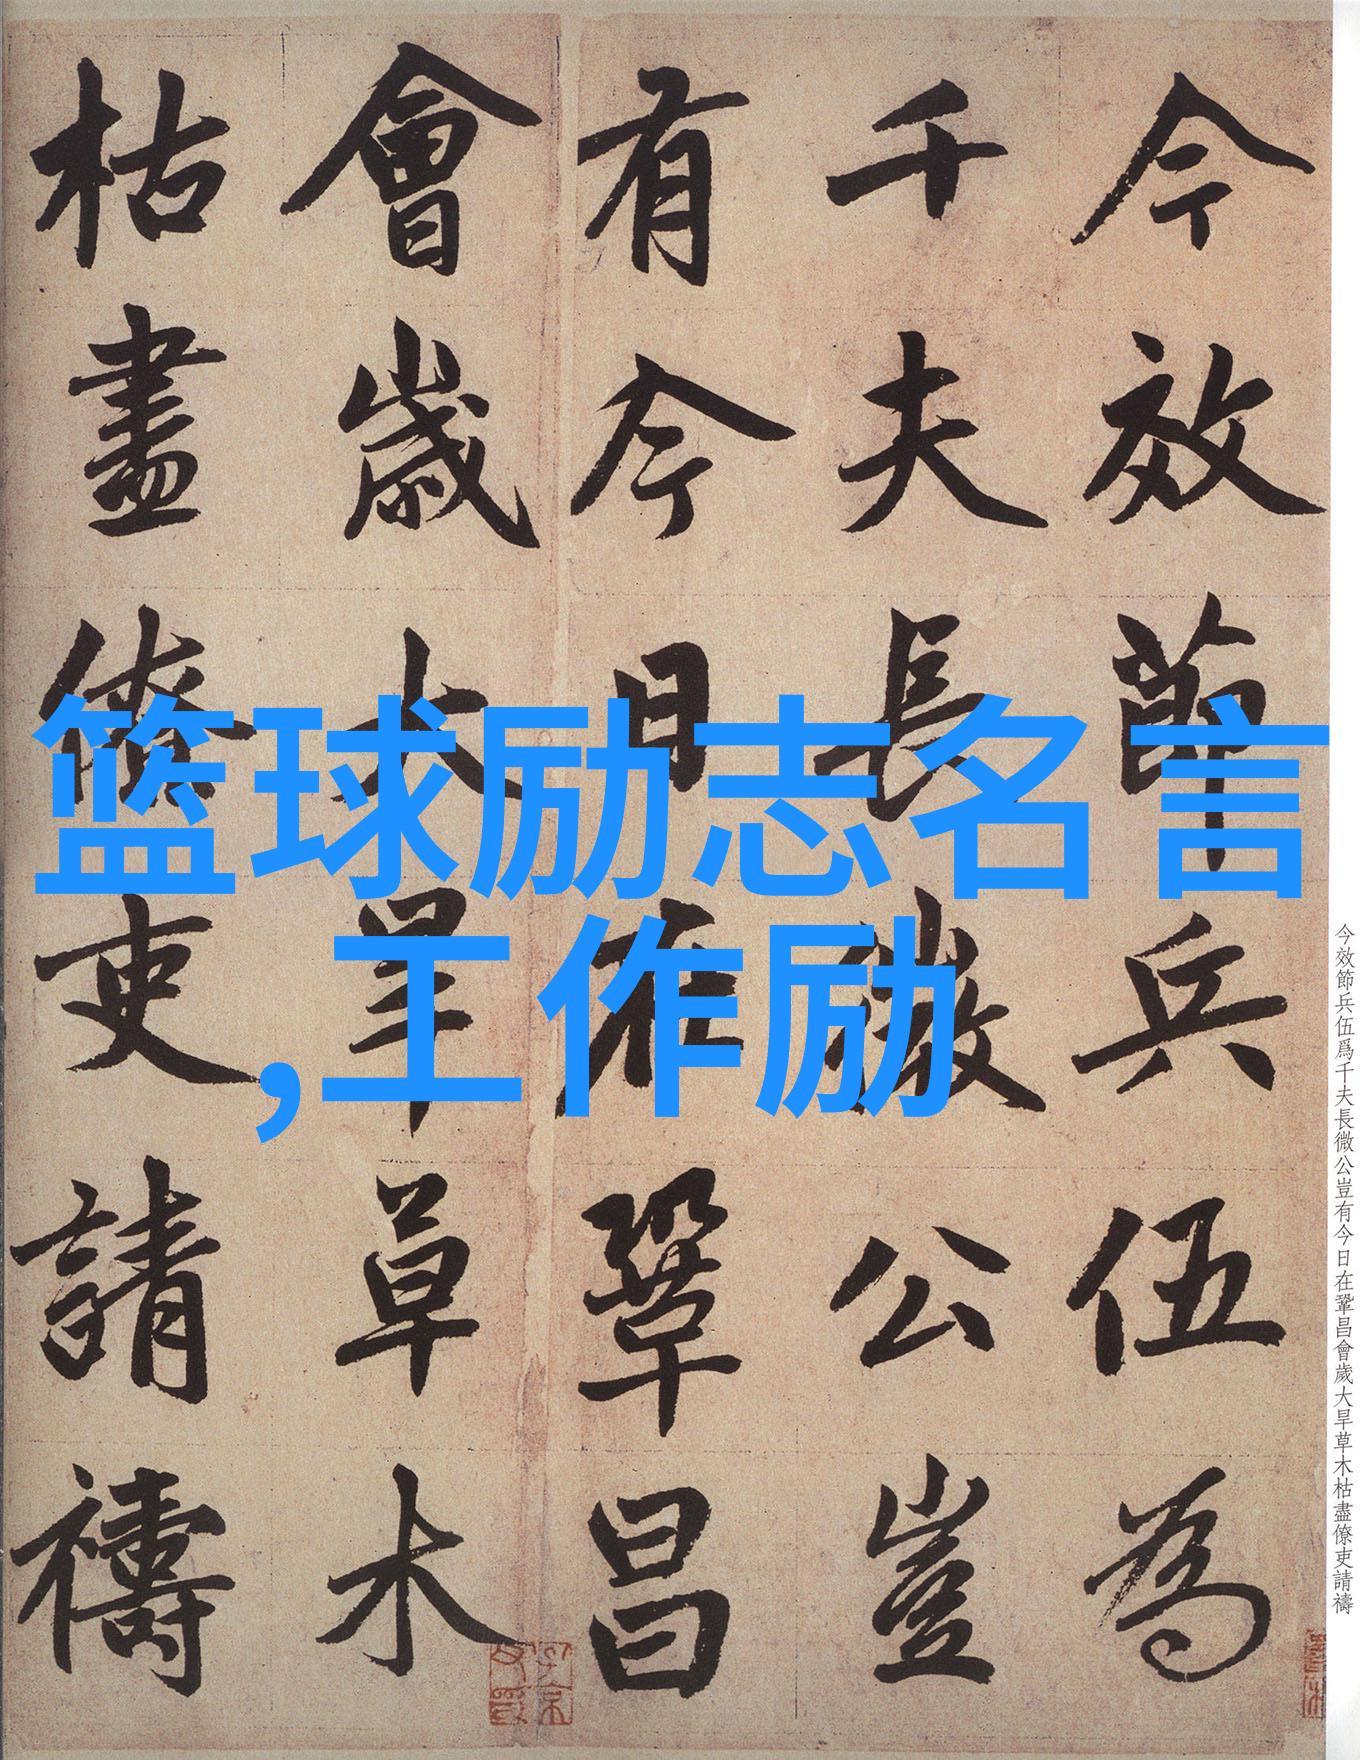 今效節兵伍為
千夫長微公豈
有今日在鞏昌
會歲大旱草木
枯盡僚吏請禱
篮球励志名言
,工作励
今效節兵伍爲千夫長微公豈有今日在鞏昌會歲大旱草木枯盡僚吏請禱